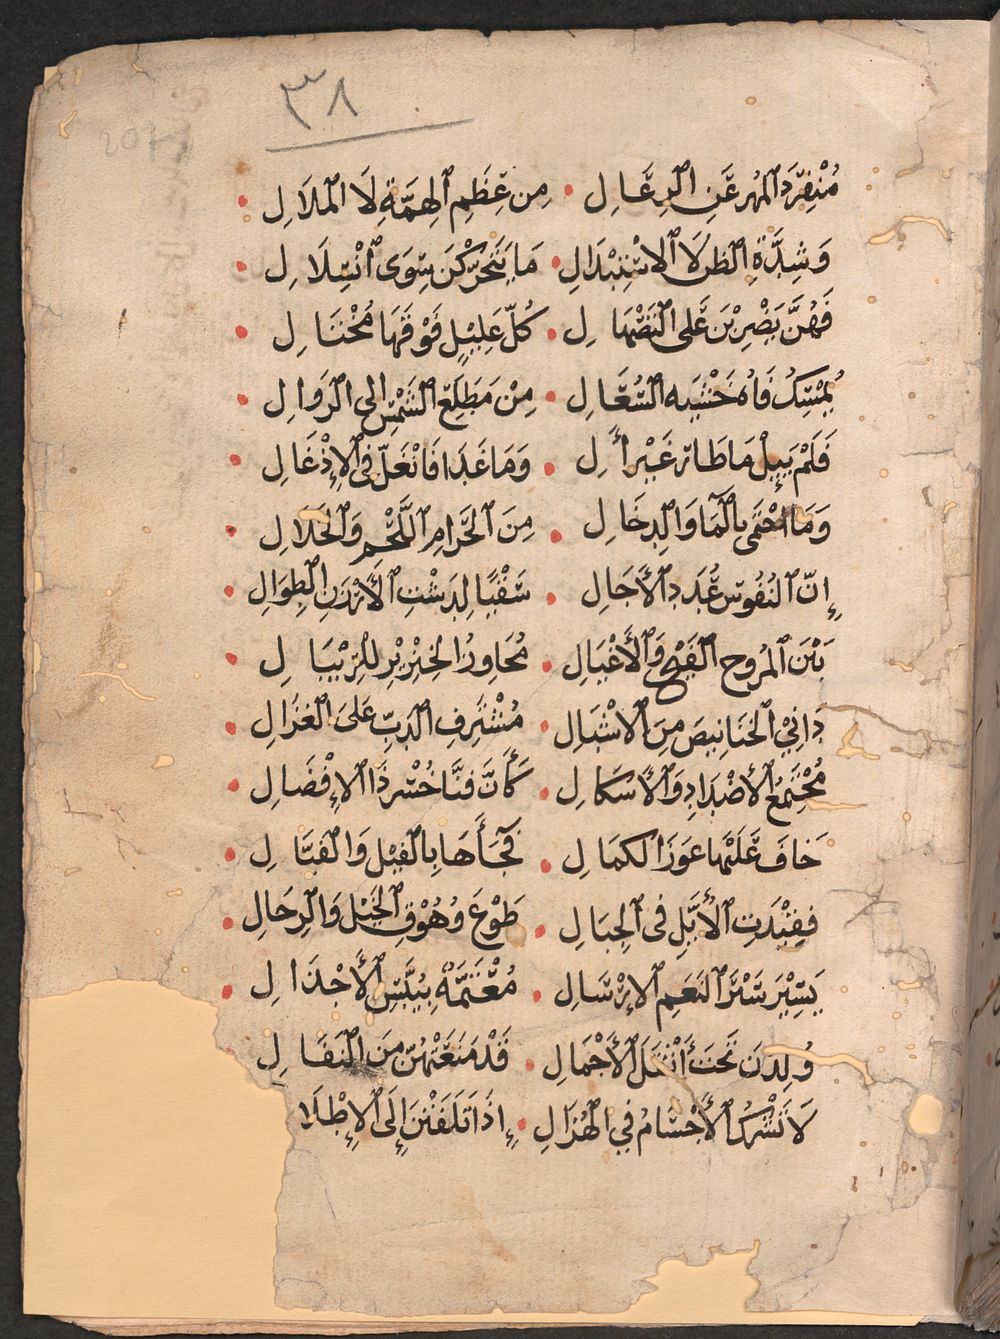 ٣٨
مُنْفَرِدَ المُهرِ عَنِ الرِعَالِ • مِن عِظَمِ الهِمَّةِ لَا المَلَالِ
وَشِدَّةِ الظنِّ لَا الاسْتِبْدَالِ • مَا يَتَحَرَّكْنَ سِوَى انْسِلَالِ
فَهُنَّ يُضْرَبْنَ عَلى التَصْهَالِ • كُلّ عَلِيْلٍ فَوْقَهَا مُخْتَالِ
يُمْسِكُ فَاهُ خَشْيَه السُّعَالِ • مِنْ مَطْلَعِ الشَمْسِ الى الزَوَالِ
فَلَمْ يَئِلْ مَا طَارَ غَيْرَ أٰلِ • وَمَا عَدَا فَانْغَلّ فى الإِدْغَالِ
وَمَا احْتَمى بِالْمَا وَالدِحَالِ • مِنَ الحَرَامِ اللَّحْمِ وَالحَلالِ
إِنّ النُفُوسَ عُدَدُ الأٰجَالِ • سَقْيًا لِدَشْتِ الأَرْزَنِ الطِوَالِ
بَيْنَ المُرُوجِ الفِيْحِ وَالأَغْيَالِ • مُجَاوِرُ الخِنْزِيْرِ لِلرِئْبَالِ
دَانِيْ الخَنَانِيصَ مِنَ الاشْبَالِ • مُشْتَرِفِ الدُبِّ عَلىَ الغَزَالِ
مُجْتَمِعُ الأضْدَادِ وَالأشكالِ • كَأَنَّ فنَّاخُسْرَ ذَا الإِفْضَالِ
خافَ عَلَيْها عوَزَ الكمَالِ • فَجَأَهَا بِالفِيْلِ وَالفَيَّالِ
فَقِيْدَتِ الأُيّلِ فى الجِبَالِ • طَوْعَ وُهُوقِ الخَيْلِ وَالرِجَالِ
يَسِيْرَ سَيْرَ النَعَمِ الارْسَالِ • مُعْتَمَّةً بِيُبَّسِ الأَجْذَالِ
وُلِدنَ تَحْتَ أَثْقَلِ الأَحْمَالِ • قَدْ مَنَعَتْهُنّ مِنَ التَفَالِ
لَا تَشْرَكُ الأَجْسَامُ في الهُزَالِ • إِذَا تَلَفَتْنَ إِلَى الإِظْلَا